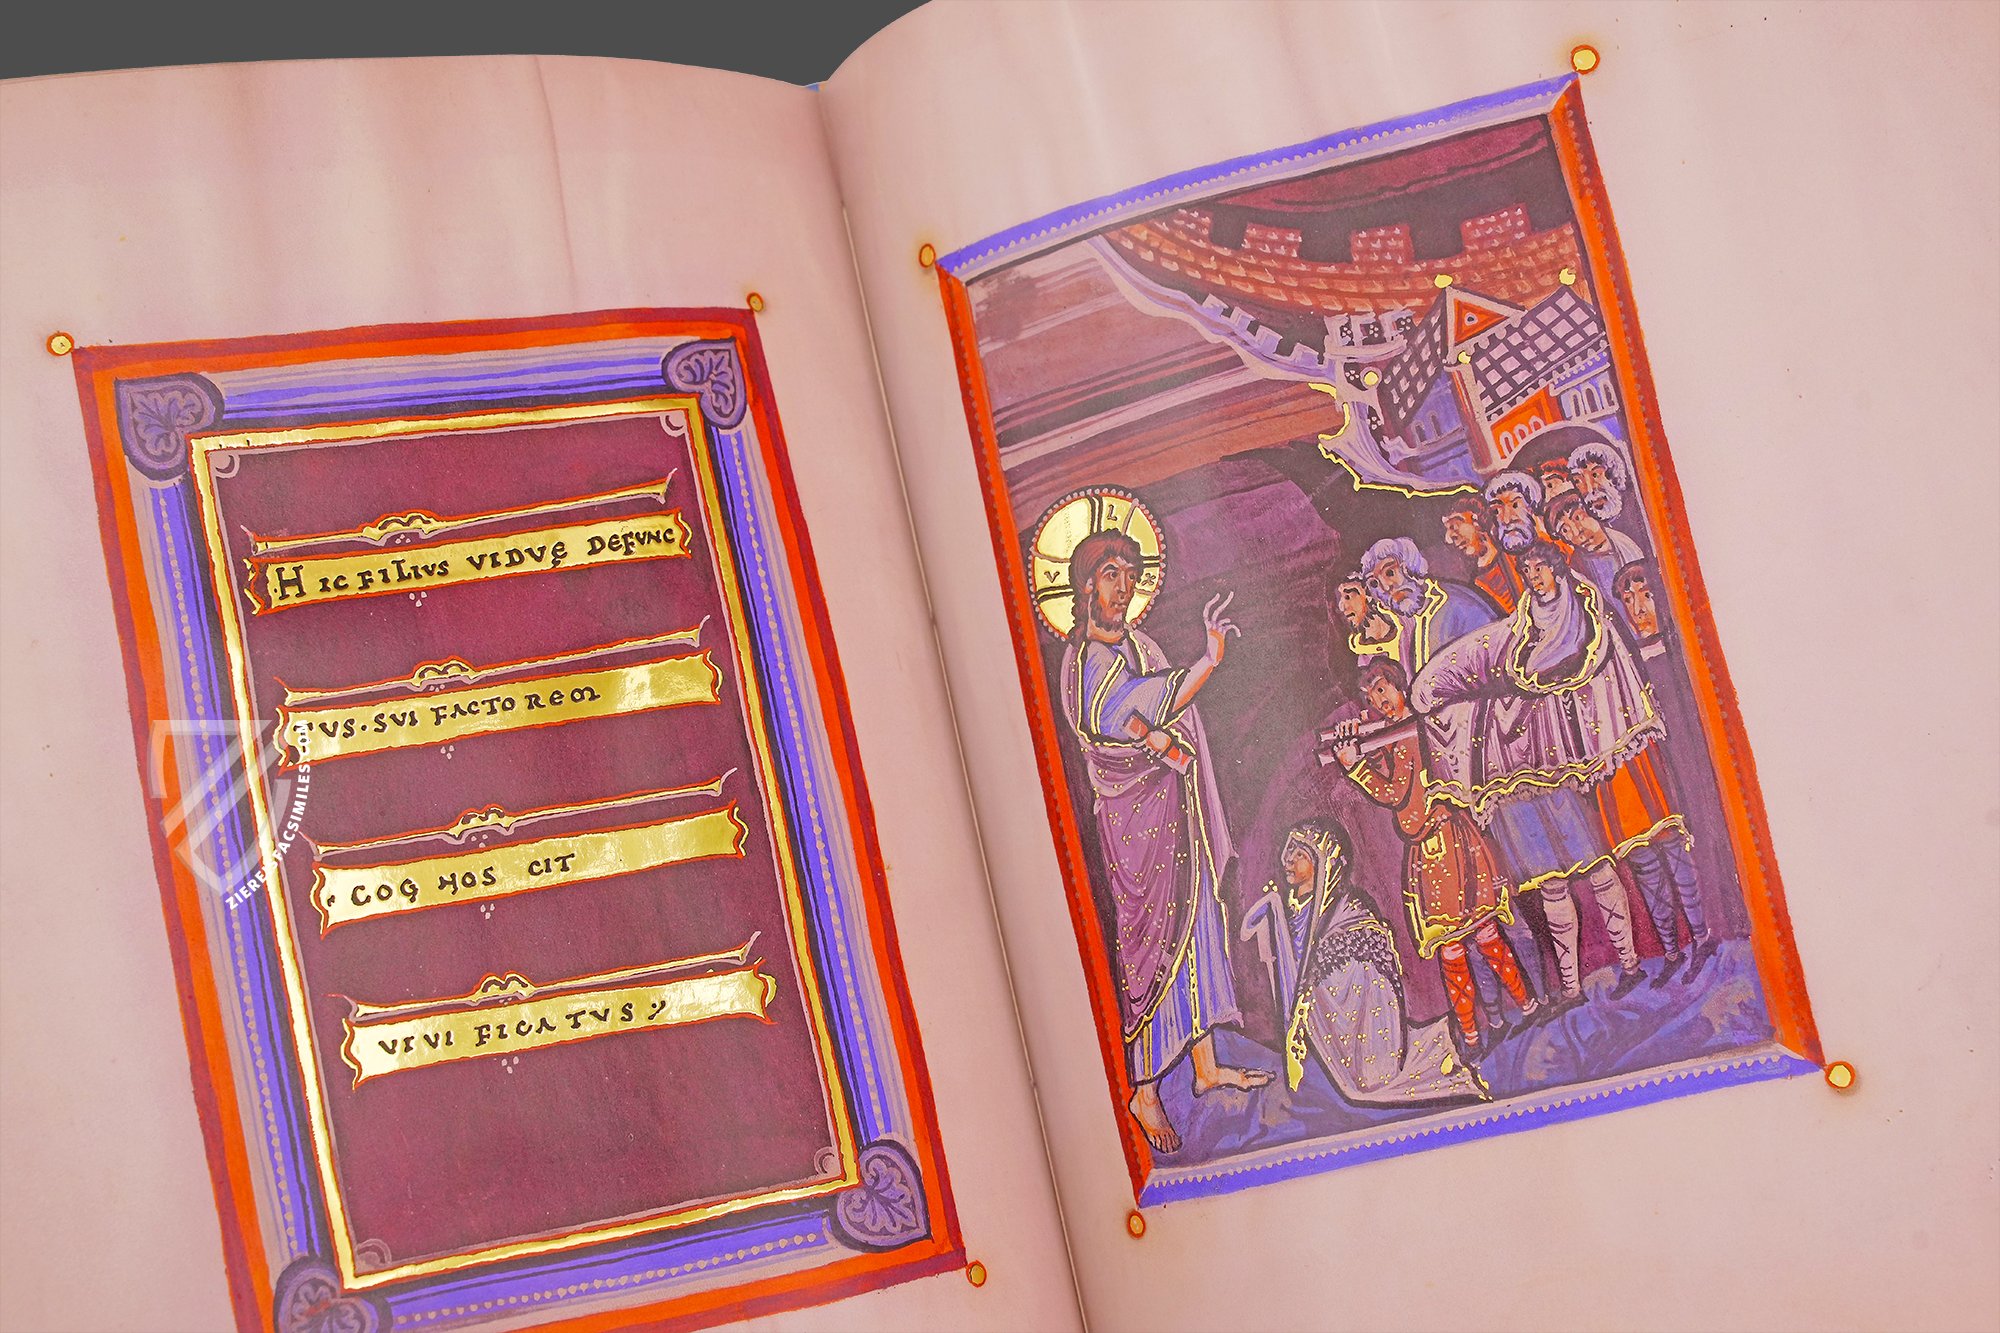 HIC FILIUS VIDVĘ DEFVNC
TVS · SVI FACTOREM
· COGNOSCIT
VIVIFICATVS
L
V X
ZIEREIS-FACSIMILES.COM